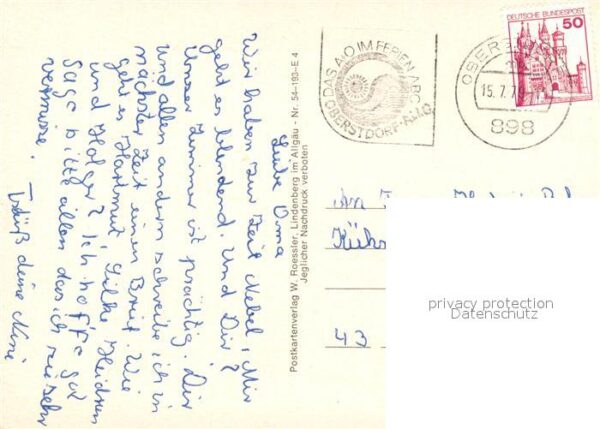 Liebe Oma
Wir haben zur Zeit Nebel, Mir
geht es blendend. Und Dir?
Unser Zimmer ist prächtig. Dir
und allen andern schreibe ich in
nächster Zeit einen Brief. Wie
geht es Hartmut, Silke, Heidrun
und Holger? Ich hoffe gut
Sage bitte allen das ich sie sehr
vermisse.
Grüß deine Nine
Postkartenverlag W. Roessler, Lindenberg im Allgäu - Nr. 54-193-E 4
Jeglicher Nachdruck verboten
DAS A/O IM FERIEN-ABC
OBERSTDORF-ALLG.
OBERS
15.7.79
898
DEUTSCHE BUNDESPOST
50
An
43
privacy protection
Datenschutz